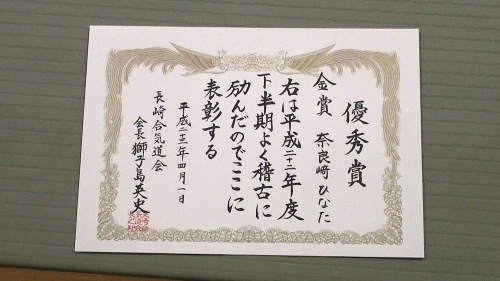 優秀賞
金賞 奈良﨑ひなた
右は平成二十二年度
下半期よく稽古に
励んだのでここに
表彰する
平成二十三年四月一日
長崎合気道会
会長 獅子島英史